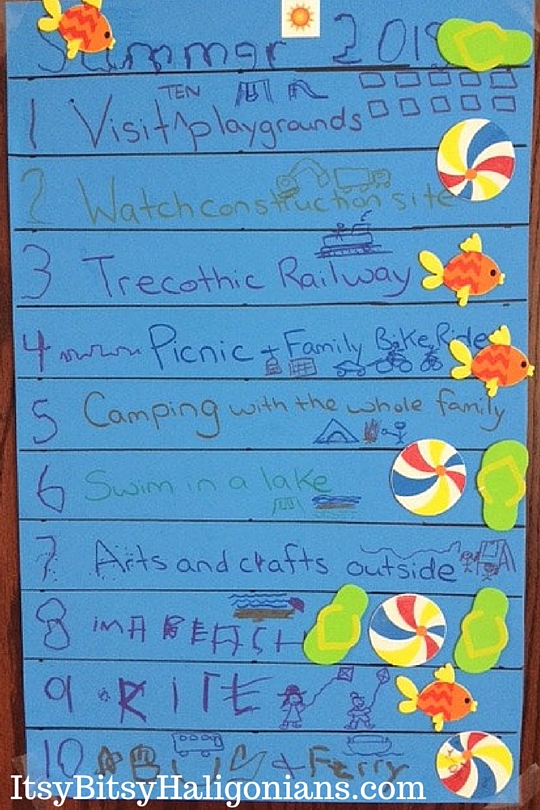 Summer
1 Visit ^ TEN playgrounds
2 Watch construction site
3 Trecothic Railway
4 Picnic + Family Bike Ride
5 Camping with the whole family
6 Swim in a lake
7 Arts and crafts outside
8 A BEACH
9 KITE
10 + Ferry
ItsyBitsyHaligonians.com